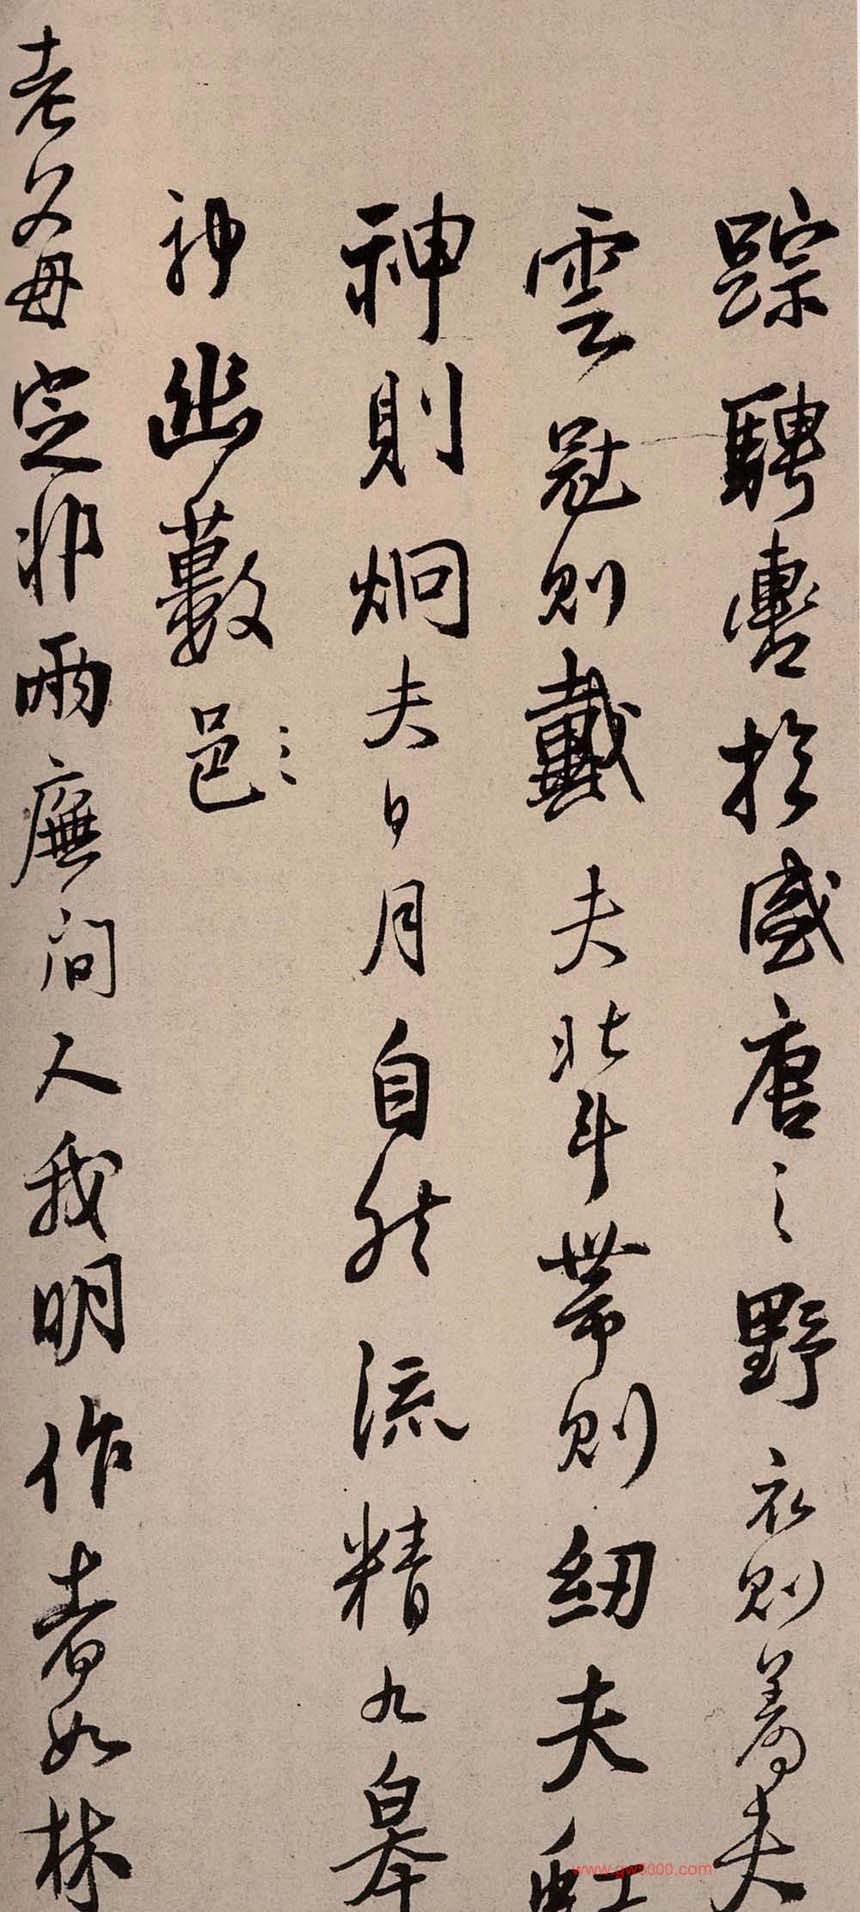 踪騁轡於盛唐之野衣則着夫
雲冠則戴夫北斗帶則紉夫虹
神則炯夫日月自然流精九皋
神幽藪邑〻
老父母定非兩廡間人我明作者如林
www.gw5000.com